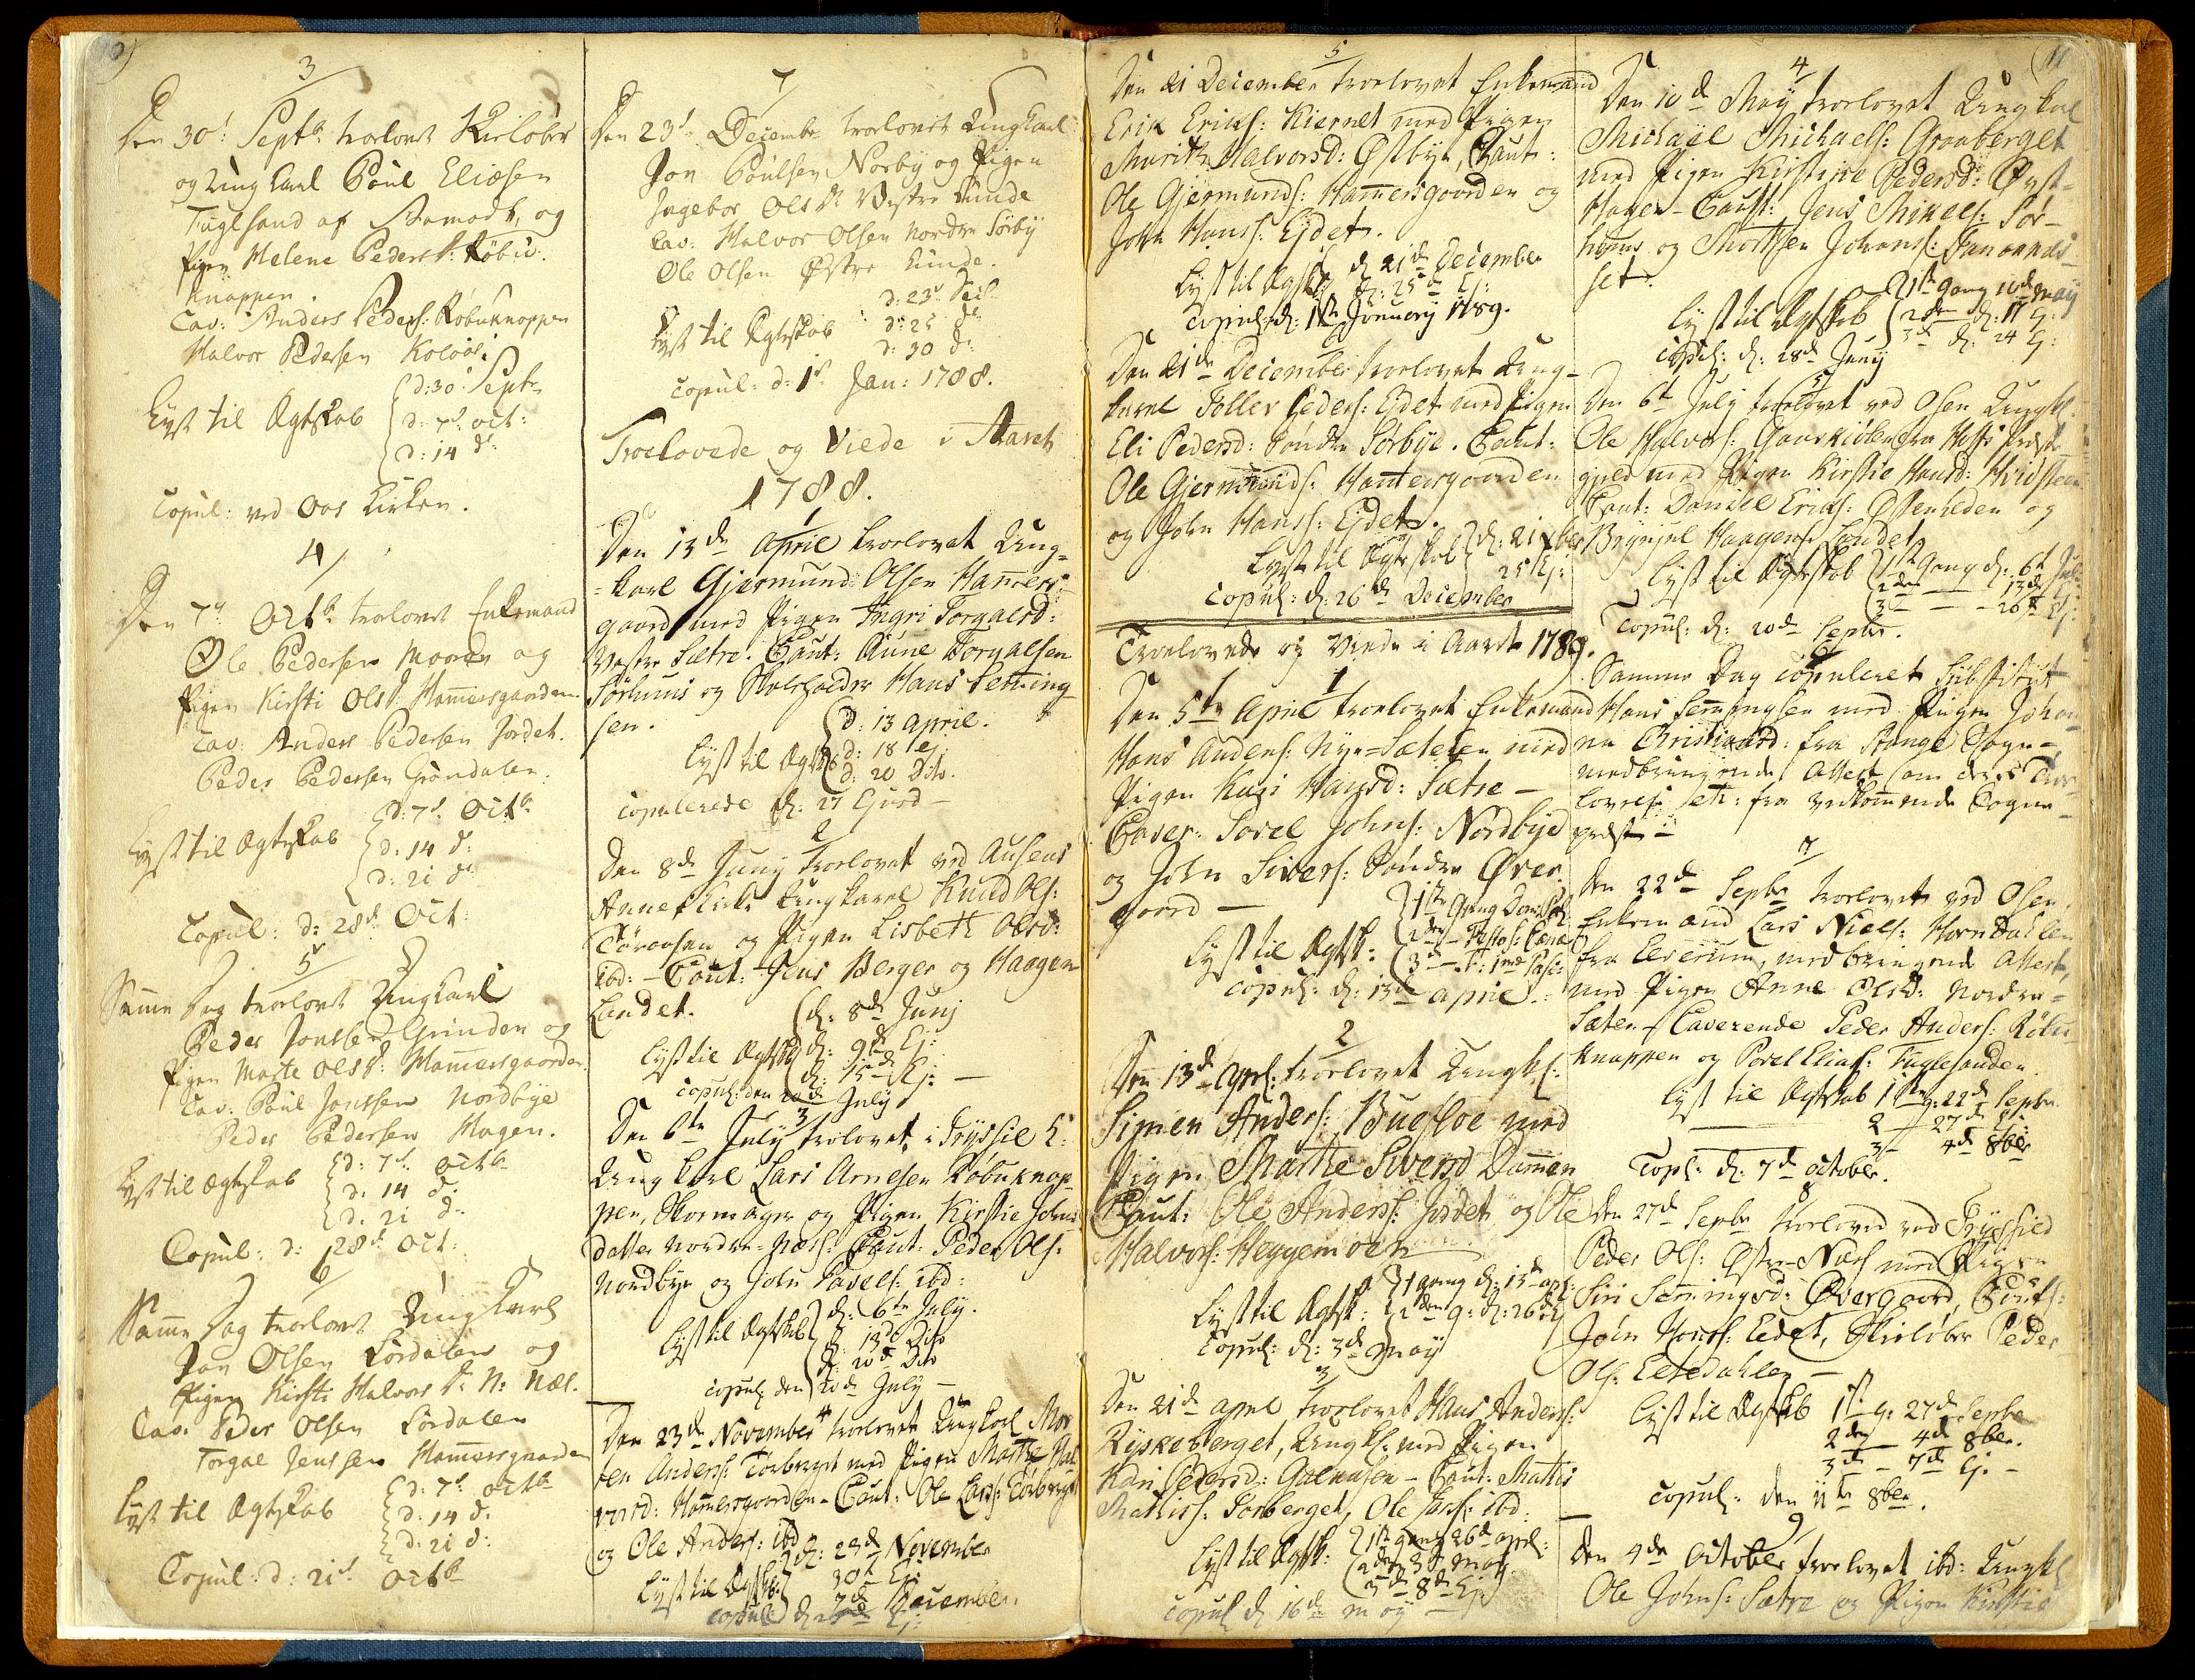 10)
3
Den 30d Septb: trolovet Skiløber
og Ung Karl Poul Eliesen
Fuglsand af Aamodt, og
Pigen Helene Pedersd: Røbu-
knappen.
Cav: Anders Peders: Røbuknappen
Halvor Pedersen Koloos:
Lyst til Ægteskab
d: 30 Sept
d: 7d oct:
d: 14 d:
Copul: ved Oos Kirken.
4
Den 7d Octb: trolovet Enkemand
Ole Pedersen Mooren og
Pigen Kirsti Olsd: Hammersgaarden
Cav: Anders Pedersen Jordet.
Peder Pedersen Grøndalen.
Lyst til Ægteskab
d: 7d Octb:
d: 14 d:
d: 21 d:
Copul: d: 28d Oct:
5
Samme Dag trolovet Ungkarl
Peder Jonssen Grinden og
Pigen Marte Olsd: Hammersgaarden
Cav: Poul Jonssen Nordbye
Peder Pedersen Hagen.
Lyst til Ægteskab
d: 7d octb:
d: 14 d:
d: 21 d:
Copul: d: 28d Oct:
6
Samme Dag trolovet Ung Karl
Jon Olsen Lørdalen og
Pigen Kirsti Halvorsd: N: Næs.
Cav: Peder Olsen Lørdalen
Torgal Jenssen Hammersgaarden
Lyst til Ægteskab
d: 7d octb:
d: 14 d:
d: 21 d:
Copul: d: 21d Octb:
7
Den 23d Decembr trolovet Ungkarl
Jon Poulsen Norby og Pigen
Ingebor Olsd: Vestre Lunde
Cav: Halvor Olsen Nordre Sørby
Ole Olsen Østre Lunde.
Lyst til Ægteskab
d: 23d Dec:
d: 25 d:
d: 30 d:
Copul: d: 1d Jan: 1788.
Troelovede og Viede i Aaret
1788.
1
Den 13de April troelovet Ung-
=karl Gjermund Olsen Hammers-
gaard med Pigen Ingri Torgalsd:
Vestre Sætre. Caut: Aune Torgalsen
Sørhuus og Skoleholder Hans Semming
sen.
Lyst til Ægtsk
d: 13 April.
d: 18 Ej:
d: 20 Dito.
Copulerede d: 27 Ejusd -
2
Den 8de Juny troelovet ved Ausens
Annex Kirke Ungkarl Knud Ols:
Tøraasen og Pigen Lisbeth Olsd:
ibd: - Caut: Jens Berger og Haagen
Landet.
Lyst til Ægtskb
d: 8de Junj
d: 9de Ej:
d: 15de Ej: -
Copul: den 20de July
3
Den 6te July trolovet i Tryssil K:
Ung Karl Lars Arnesen Røbuknap-
pen, Skomager og Pigen Kirstie Johns
datter Nordre-Næss: Caut: Peder Ols:
Nordbye og John Povels: ibd:
Lyst til Ægtskb
d: 6te July.
d: 13de Dito
d: 20de Dito
copul: den 20de July -
4
Den 23de November troelovet Ungkarl Mor
ten Anders: Torberget med Pigen Marthe Hal
vorsd: Hammersgaarden - Caut: Ole Lars: Torberget
og Ole Anders: ibd
Lyst til Ægtsk:
d: 23de November
30te Ej:
7de December.
Copul: d: Ej:
5
Den 21 December troelovet Enkemand
Erik Eriks: Kiernet med Pigen
Marith Halvorsd: Østbye, Caut:
Ole Gjermunds: Hammersgaarden og
John Hanss: Ejdet.
Lyst til Ægtsk:
d: 21de December
d: 25de Ej:
Copul: d: 1te January 1789.
6
Den 21de December troelovet Ung-
karl Toller Peders: Ejdet med Pigen
Eli Pedersd: Søndre Sørbye. Caut:
Ole Gjermunds: Hammersgaarden
og John Hanss: Ejdet.
Lyst til Ægteskab
d: 21 xber
25 Ej:
Copul: d: 26de December
Troelovede og Viede i Aaret 1789.
1
Den 5te April troelovet Enkemand
Hans Anders: Nye-Sæteren med
Pigen Kari Hansd: Sætre -
Caver: Povel Johns: Nordbye
og John Sivers: Søndre Øver
gaard -
Lyst til Ægtsk:
1te Gang
2den
3de
Copul: d: 13de April.
2
Den 13de Apri: troelovet Ungkl:
Simen Anders: Buefloe med
Pigen Marthe Siversd: Dammen
Caut: Ole Anderss: Jordet og Ole
Halvors: Heggemoen
Lyst til Ægtsk:
1 gang d: 13de apr:
2den g: d: 26de Ej
Copul: d: 3de May
3
Den 21de April troelovet Hans Anders:
Ryskeberget, Ungkl: med Pigen
Kari Pedersd: Galaasen - Caut: Mattis
Mathiss: Torberget, Ole Lars: ibd:
Lyst til Ægtsk:
1te gang 26de april:
2den 3de May.
3de 8de Ej:
Copul d: 16de May -
(11
4
Den 10de May troelovet Ungkarl
Michael Michaels: Graaberget
med Pigen Kirstine Pedersd: Øvst-
Hagen - Caut: Jens Mikels: Sør-
huus og Morthen Johans:
set -
Lyst til Ægteskab
1te Gang 10de May
2de d: 17 Ej:
3de d: 24 Ej:
Copul: d: 28de Juny
5
Den 6te July troelovet ved Osen Ungkl:
Ole Halvors: Gaaskiølen fra Hoffs Præste
gjeld med Pigen Kirstie Hansd: Hvidsteen
Caut: Daniel Eriks: Østenheden og
Brynjul Haagens: Landet
Lyst til Ægteskab
1te Gang d: 6te Juli
2den 13de
3 - - - 26de Ej:
Copul: d: 20de Septbr.
6
Samme Dag copuleret Substitut
Hans Semmingsen med Pigen Johan-
na Christiansd: fra Stange Sogn -
medbringende Attest om deres Troe
lovelse etc: fra vedkommende Sogne-
præst -
7
Den 22de Septbr troelovet ved Osen
Enkemand Lars Niels: Horndahlen
fra Elverum, medbringende Attest,
med Pigen Anne Olsd: Nordre-
Sæter - Caverende Peder Anders: Røbu
knappen og Povel Elias: Fuglesanden.
Lyst til Ægtskab
1te g: 22de Septbr.
2 - 27de Ej:
3 - 4de 8ber
Copl: d: 7de October.
8
Den 27de Septbr troeloved ved Tryssild
Peder Ols: Østre-Næs med Pigen
Siri Semmingsd: Øvergaard, Caut:
John Hanss: Eidet, Skiløber Peder
Ols: Eltedahlen -
Lyst til Ægtskb
1te g: 27de Septbr
2den 4de 8ber.
3de - 7de Ej: -
Copul: den 11te 8ber.
9
Den 4de October troelovet ibd: Ungkl
Ole Johns: Sætre og Pigen Kirstie